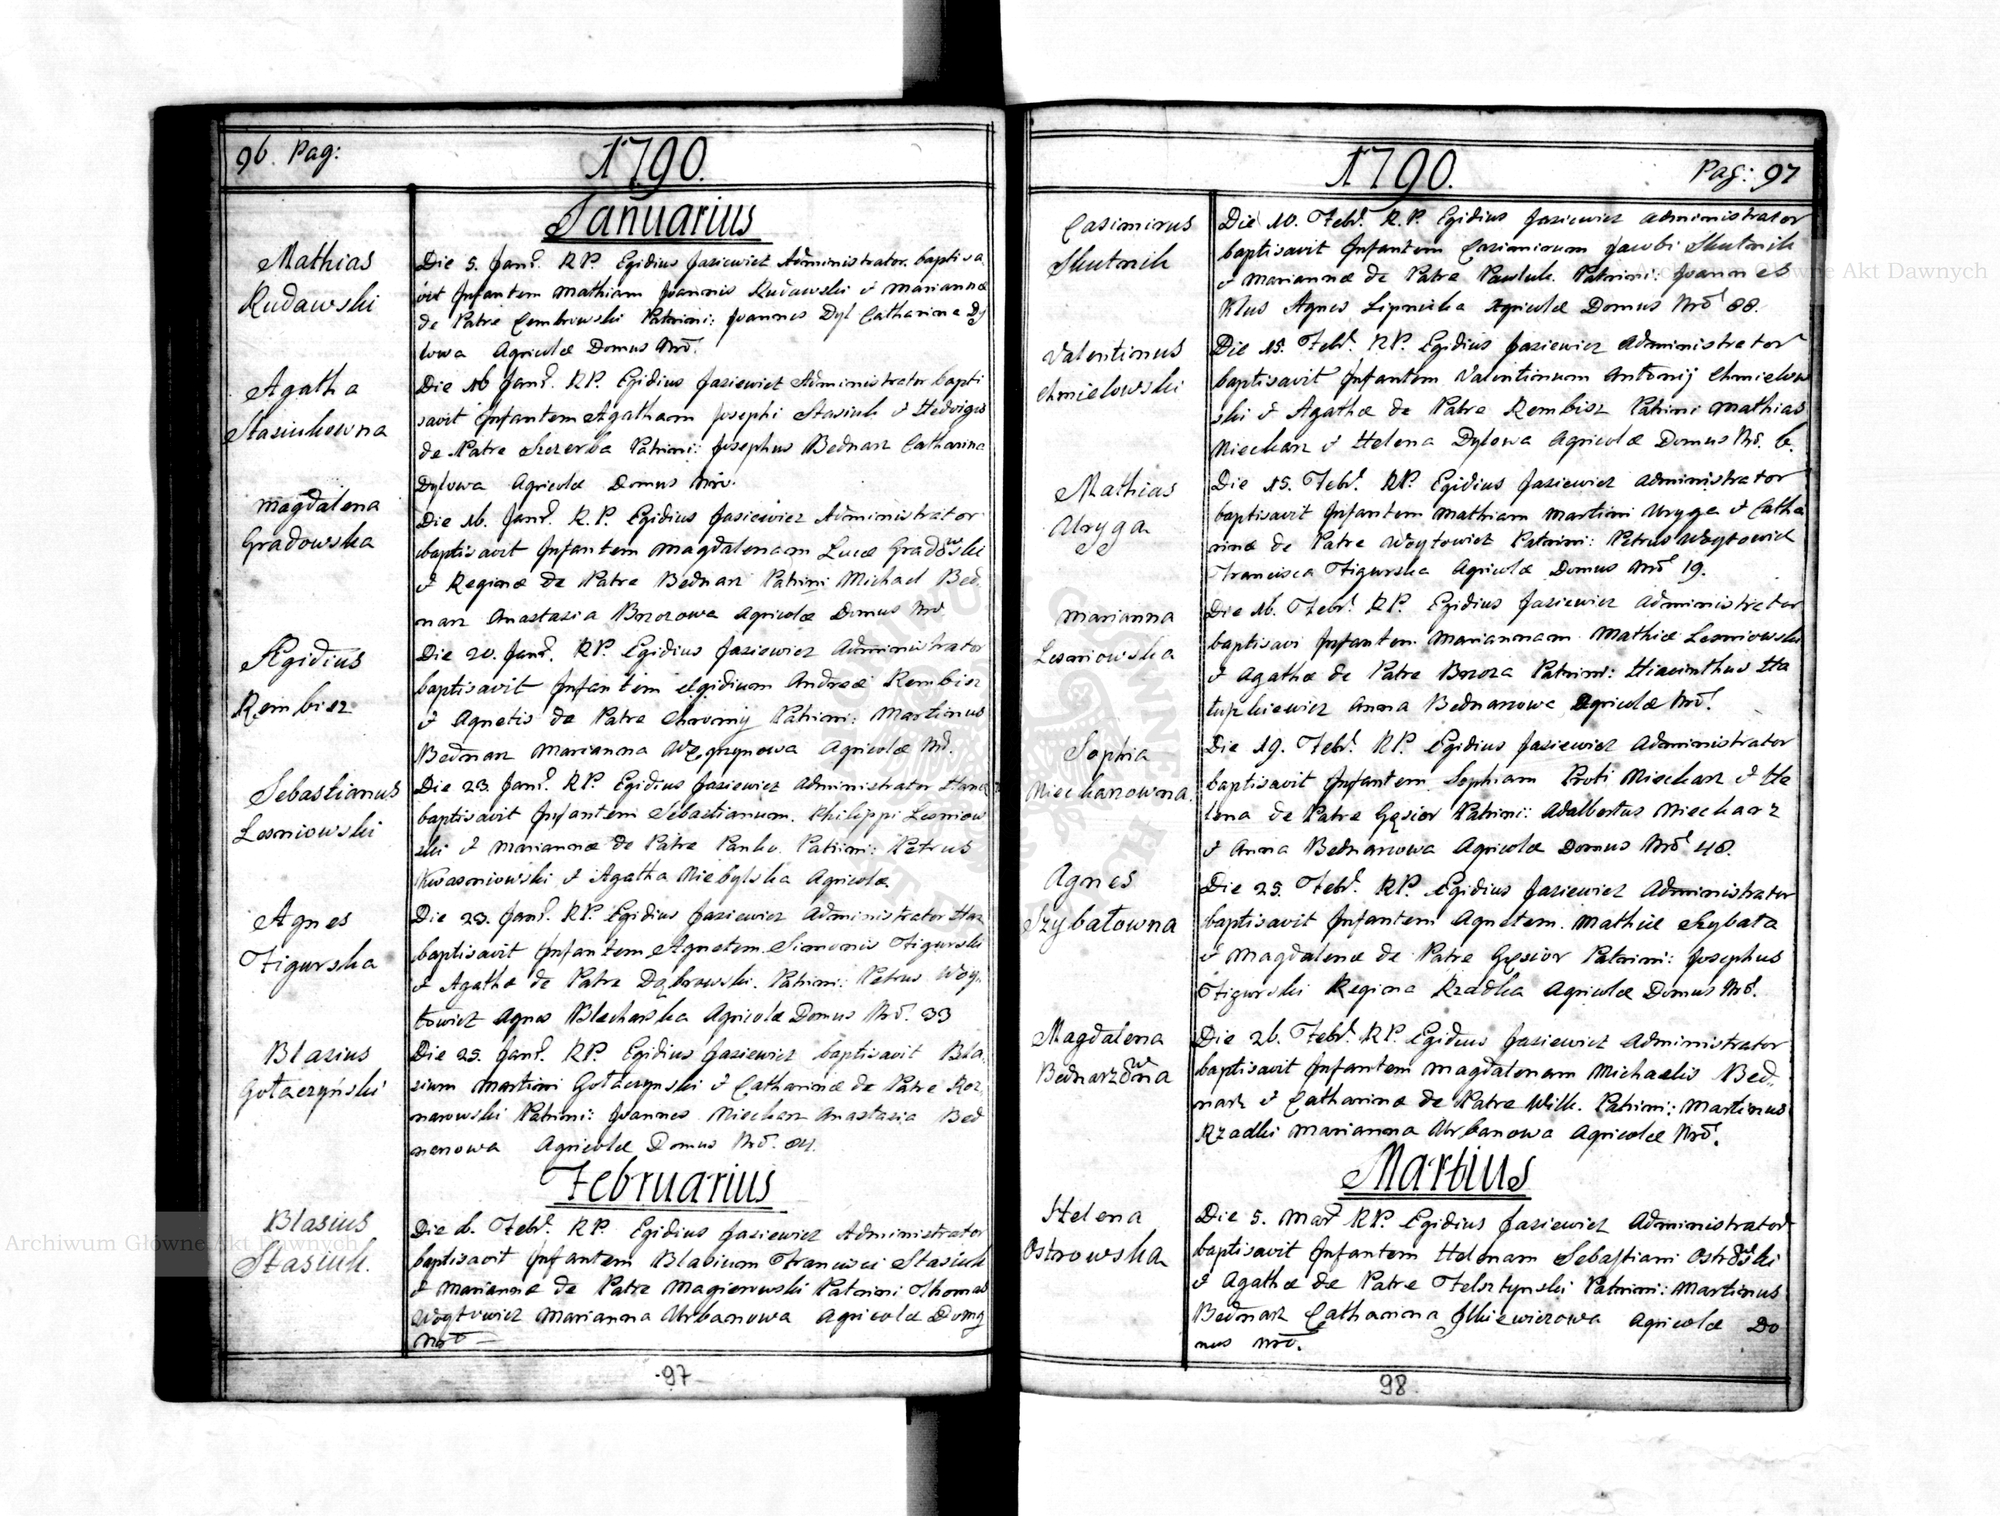 96. Pag:
1790.
Januarius
Mathias
Rudawski
Die 5. Janr. RP. Egidius Jasiewicz Administrator baptisa
vit Infantem Mathiam Joannis Rudawski & Mariannæ
de Patre Cembrowski Patrini: Joannes Dyl Catharina Dy
lowa Agricolæ Domus Nro.
Agatha
Stasiukowna
Die 16 Janr. RP. Egidius Jasiewicz Administrator bapti
savit Infantem Agatham Josephi Stasiuk & Hedvigis
de Patre Szczerba Patrini: Josephus Bednarz Catharina
Dylowa Agricolæ Domus Nro.
Magdalena
Gradowska
Die 16. Janr. R.P. Egidius Jasiewicz Administrator
baptisavit Infantem Magdalenam Lucæ Gradowski
& Reginæ de Patre Bednarz Patrini Michael Bed.
narz Anastazia Brozowa Agricolæ Domus Nro
Ægidius
Rembisz
Die 20. Janr. RP. Egidius Jasiewicz Administrator
baptisavit Infantem Egidium Andreæ Rembisz
& Agnetis de Patre Chromij Patrini: Martinus
Bednarz Marianna Węgrzynowa Agricolæ Nro.
Sebastianus
Lesniowski
Die 23. Janr. RP. Egidius Jasiewicz Administrator
baptisavit Infantem Sebastianum. Philippi Lesniow
ski & Mariannæ de Patre Panko. Patrini: Petrus
Kwasniowski & Agatha Niebylska Agricolæ
Agnes
Figurska
Die 23. Janr. RP. Egidius Jasiewicz Administrator Haz
baptisavit Infantem Agnetem Simonis Figurski
& Agathæ de Patre Dąbrowski. Patrini: Petrus Woy.
towicz Agnes Blecharska Agricolæ Domus Nro. 33
Blasius
Gołaczyński
Die 25. Janr. RP. Egidius Jasiewicz baptisavit Bla.
sium Martini Gołaczynski & Catharinæ de Patre Roz.
narowski Patrini: Joannes Miecharz Anastazia Bed
narzowa Agricolæ Domus Nro. 84.
Februarius
Blasius
Stasiuk.
Die 6. Febr. RP. Egidius Jasiewicz Administrator
baptisavit Infantem Blasium Francisci Stasiuk
& Mariannæ de Patre Magierowski Patrini Thomas
Woytowicz Marianna Urbanowa Agricolæ Domus
Nro
97
1790.
Pag: 97
Casimirus
Skutnik
Die 10. Febr. R.P. Egidius Jasiewicz Administrator
baptisavit Infantem Casimirum Jacobi Skutnik
& Mariannæ de Patre Pawluk. Patrini: Joannes
Klus Agnes Lipnicka Agricolæ Domus Nro 88.
Valentinus
Chmielowski
Die 15. Febr. RP. Egidius Jasiewicz Administrator
baptisavit Infantem Valentinum Antonij Chmielow
ski & Agathæ de Patre Rembisz Patrini Mathias
Miecharz & Helena Dylowa Agricolæ Domus Nro. 6.
Mathias
Uryga
Die 15. Febr. RP. Egidius Jasiewicz Administrator
baptisavit Infantem Mathiam Martini Uryga & Catha
rinæ de Patre Woytowicz Patrini: Petrus Woytowicz
Francisca Figurska Agricolæ Domus Nro 19.
Marianna
Lesniowska
Die 16. Febr. RP. Egidius Jasiewicz Administrator
baptisavi Infantem Mariannam Mathiæ Lesniowski
& Agathæ de Patre Broza Patrini: Hiacinthus Ha
łuszkiewicz Anna Bednarzowa Agricolæ Nro.
Sophia
Miecharzowna
Die 19. Febr. RP. Egidius Jasiewicz Administrator
baptisavit Infantem Sophiam Proti Miecharz & He
lena de Patre Gęsior Patrini: Adalbertus Miecharz
& Anna Bednarzowa Agricolæ Domus Nro 48.
Agnes
Szybałowna
Die 25. Febr. RP. Egidius Jasiewicz Administrator
baptisavit Infantem Agnetem. Mathiæ Szybała
& Magdalenæ de Patre Gęsior Patrini: Josephus
Figurski Regina Rzadka Agricolæ Domus Nro.
Magdalena
Bednarzowna
Die 26. Febr. RP. Egidius Jasiewicz Administrator
baptisavit Infantem Magdalenam Michaelis Bed.
narz & Catharinæ de Patre Wilk. Patrini: Martinus
Rzadki Marianna Urbanowa Agricolæ Nro.
Martius
Helena
Ostrowska
Die 5. Mar. RP. Egidius Jasiewicz Administrator
baptisavit Infantem Helenam Sebastiani Ostrowski
& Agathæ de Patre Felsztynski Patrini: Martinus
Bednarz Catharina Ilkiewiczowa Agricolæ Do
mus Nro.
98
Archiwum Główne Akt Dawnych
Archiwum Główne Akt Dawnych